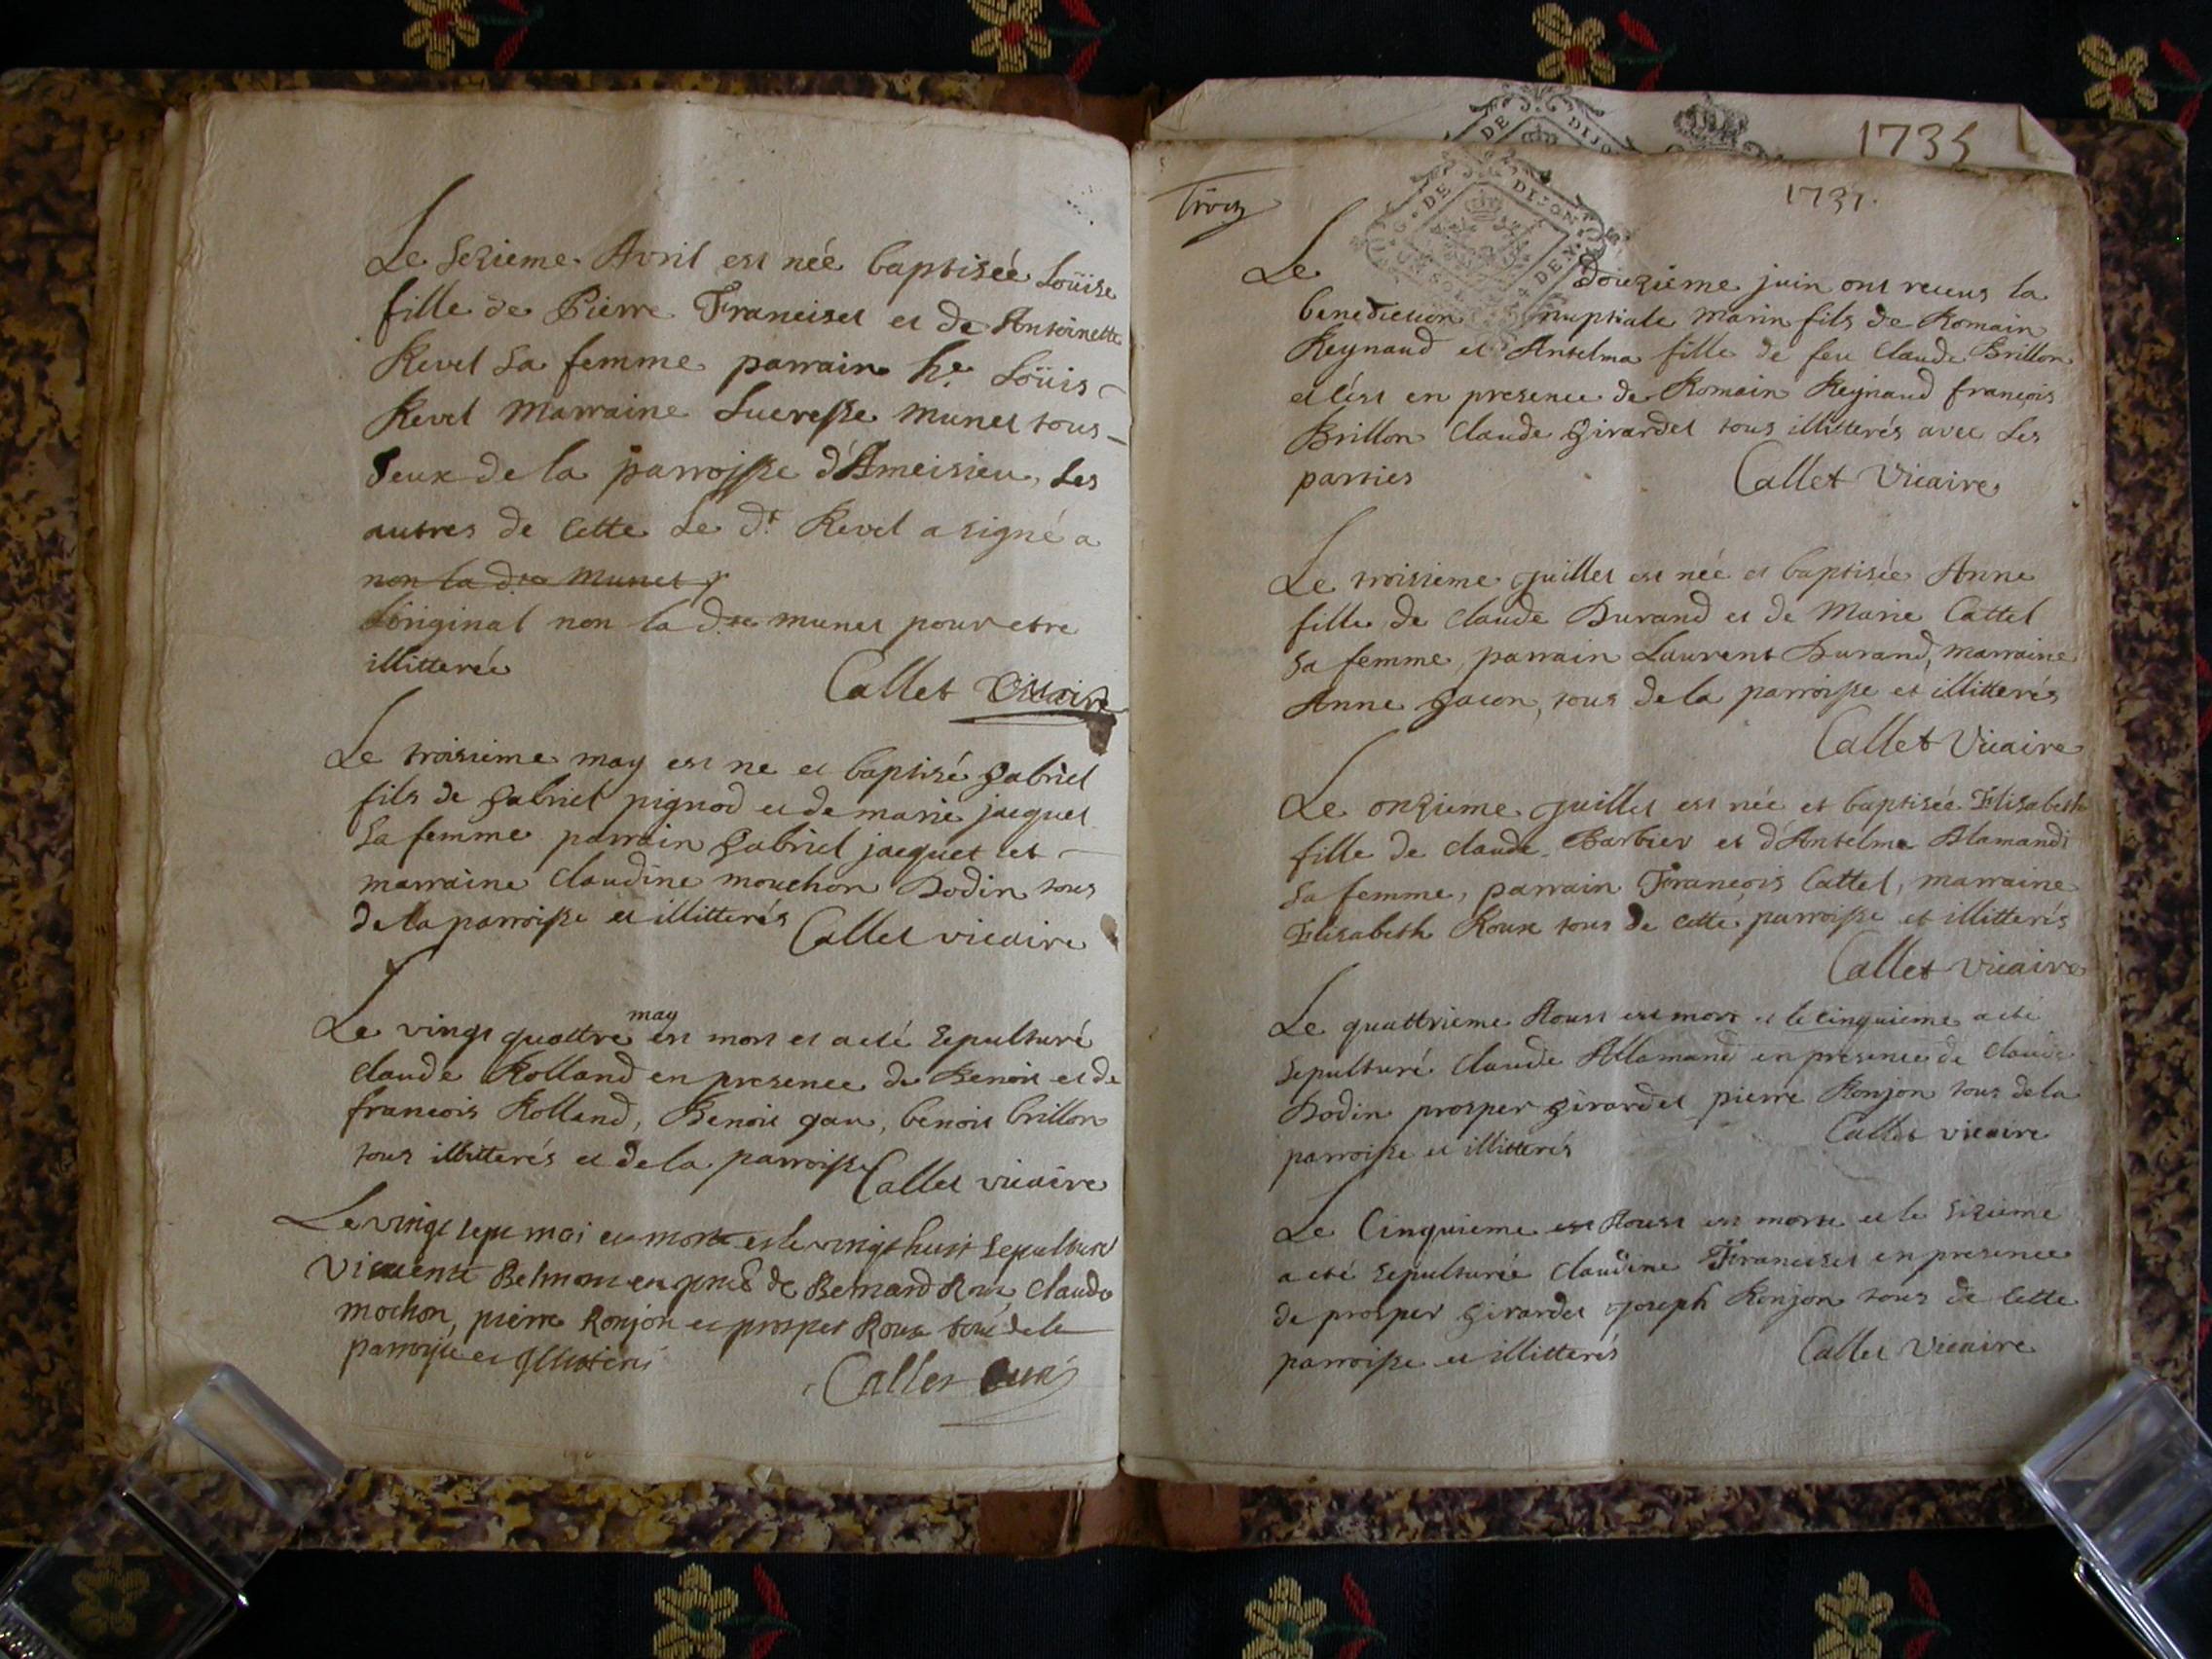 Le Sezieme Avril est née baptisée Loüise
fille de Pierre Franciset et de Antoinette
Revel sa femme parrain he. Loüis
Revel Marraine Lucresse Munet tous
deux de la parroisse d'Ameisieu, Les
autres de cette Le dt. Revel a signé a
non la dte Munet
L'original non la dte munet pour etre
illitterée
Callet Vicaire
Le troisieme may est ne et baptisé Gabriel
fils de Gabriel pignod et de marie jacquet
sa femme parrain Gabriel jacquet et
marraine Claudine mouchon Dodin tous
de la parroisse et illitterés
Callet vicaire
may
Le vingt quattre est mort et a eté sepulturé
Claude Rolland en presence de Benoit et de
francois Rolland, Benoit gau, benoit brillon
tous illitterés et de la parroisse
Callet vicaire
Le vingt sept mai est morte et le vingt huit sepulturé
Belmont en de Bernard Roux Claude
mochon, pierre Ronjon et prosper Roux tous de la
parroisse et illitterés
Callet curé
1735
1731.
Le douzieme juin ont receus la
benediction nuptiale Marin fils de Romain
Reynaud et Antelma fille de feu Claude Brillon
et c'est en presence de Romain Reynaud françois
Brillon Claude Girardet tous illitterés avec Les
parties
Callet Vicaire
Le troisieme Juillet est née et baptisée Anne
fille de Claude Durand et de Marie Cattel
sa femme, parrain Laurent Durand, marraine
Anne Gacon, tous de la parroisse et illitterés
Callet Vicaire
Le onzieme Juillet est née et baptisée Elisabeth
fille de Claude Barbier et d'Antelma Alamandi
sa femme, parrain François Cattel, marraine
Elisabeth Roux tous de cette parroisse et illitterés
Callet vicaire
Le quattrieme Aoust est mort et le cinquieme a eté
sepulturé Claude Allamand en presence de Claude
Dodin prosper girardet pierre Ronjon tous de la
parroisse et illitterés
Callet vicaire
Le Cinquieme est Aoust est morte et le sizieme
a eté sepulturée Claudine Franciset en presence
de prosper Girardet joseph Ronjon tous de cette
parroisse et illitterés
Callet Vicaire